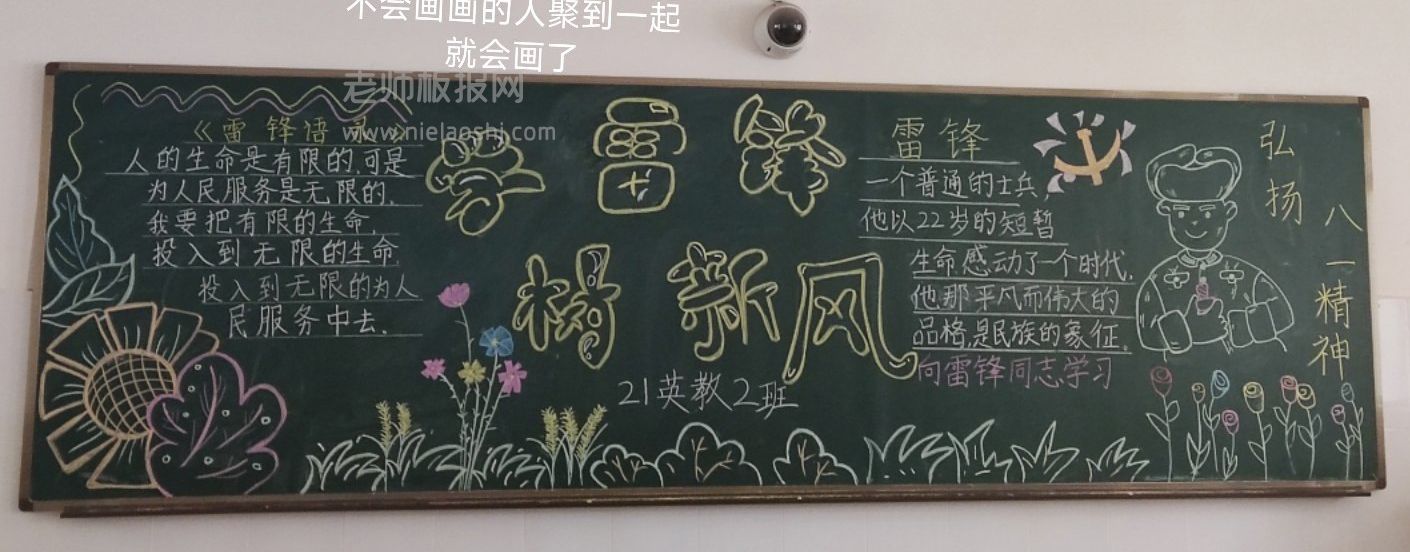 不会画画的人聚到一起
就会画了
老师板报网
www.nielaoshi.com
《雷锋语录》
人的生命是有限的,可是
为人民服务是无限的,
我要把有限的生命,
投入到无限的生命
投入到无限的为人
民服务中去.
学雷锋
树新风
21英教2班
雷锋
一个普通的士兵,
他以22岁的短暂
生命感动了一个时代,
他那平凡而伟大的
品格,是民族的象征,
向雷锋同志学习
弘扬
八一精神